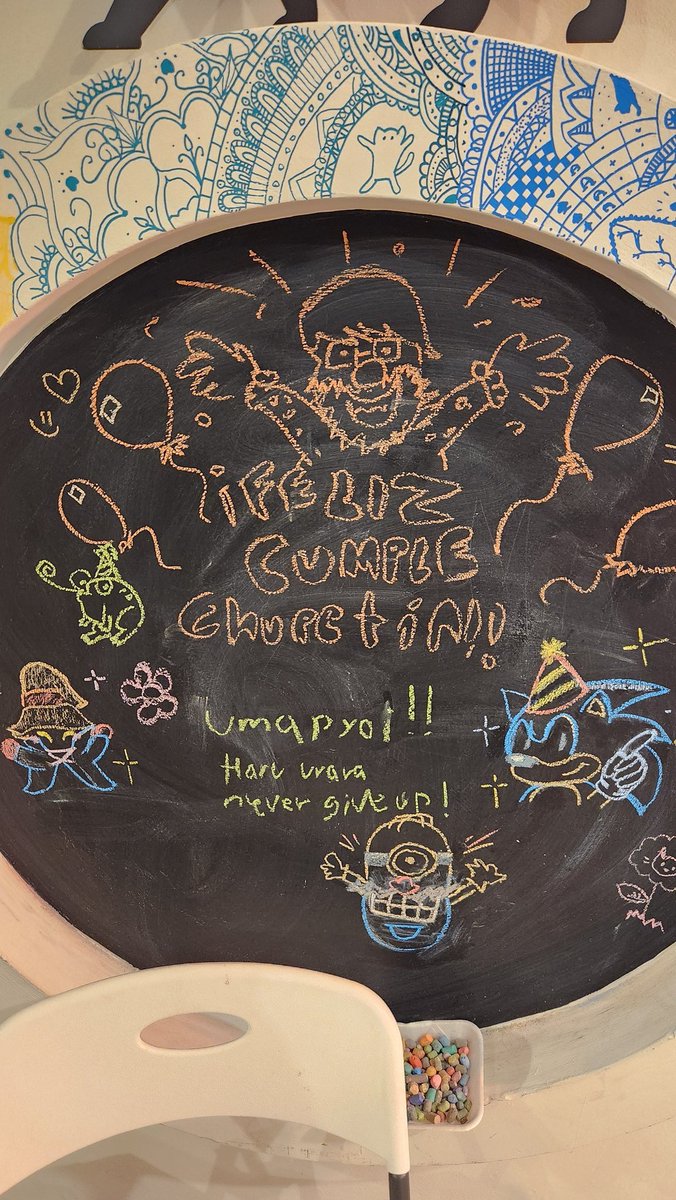 ¡FELIZ
CUMPLE
Churctin!!
umapyoi!!
Haru urara
never give up!
=)